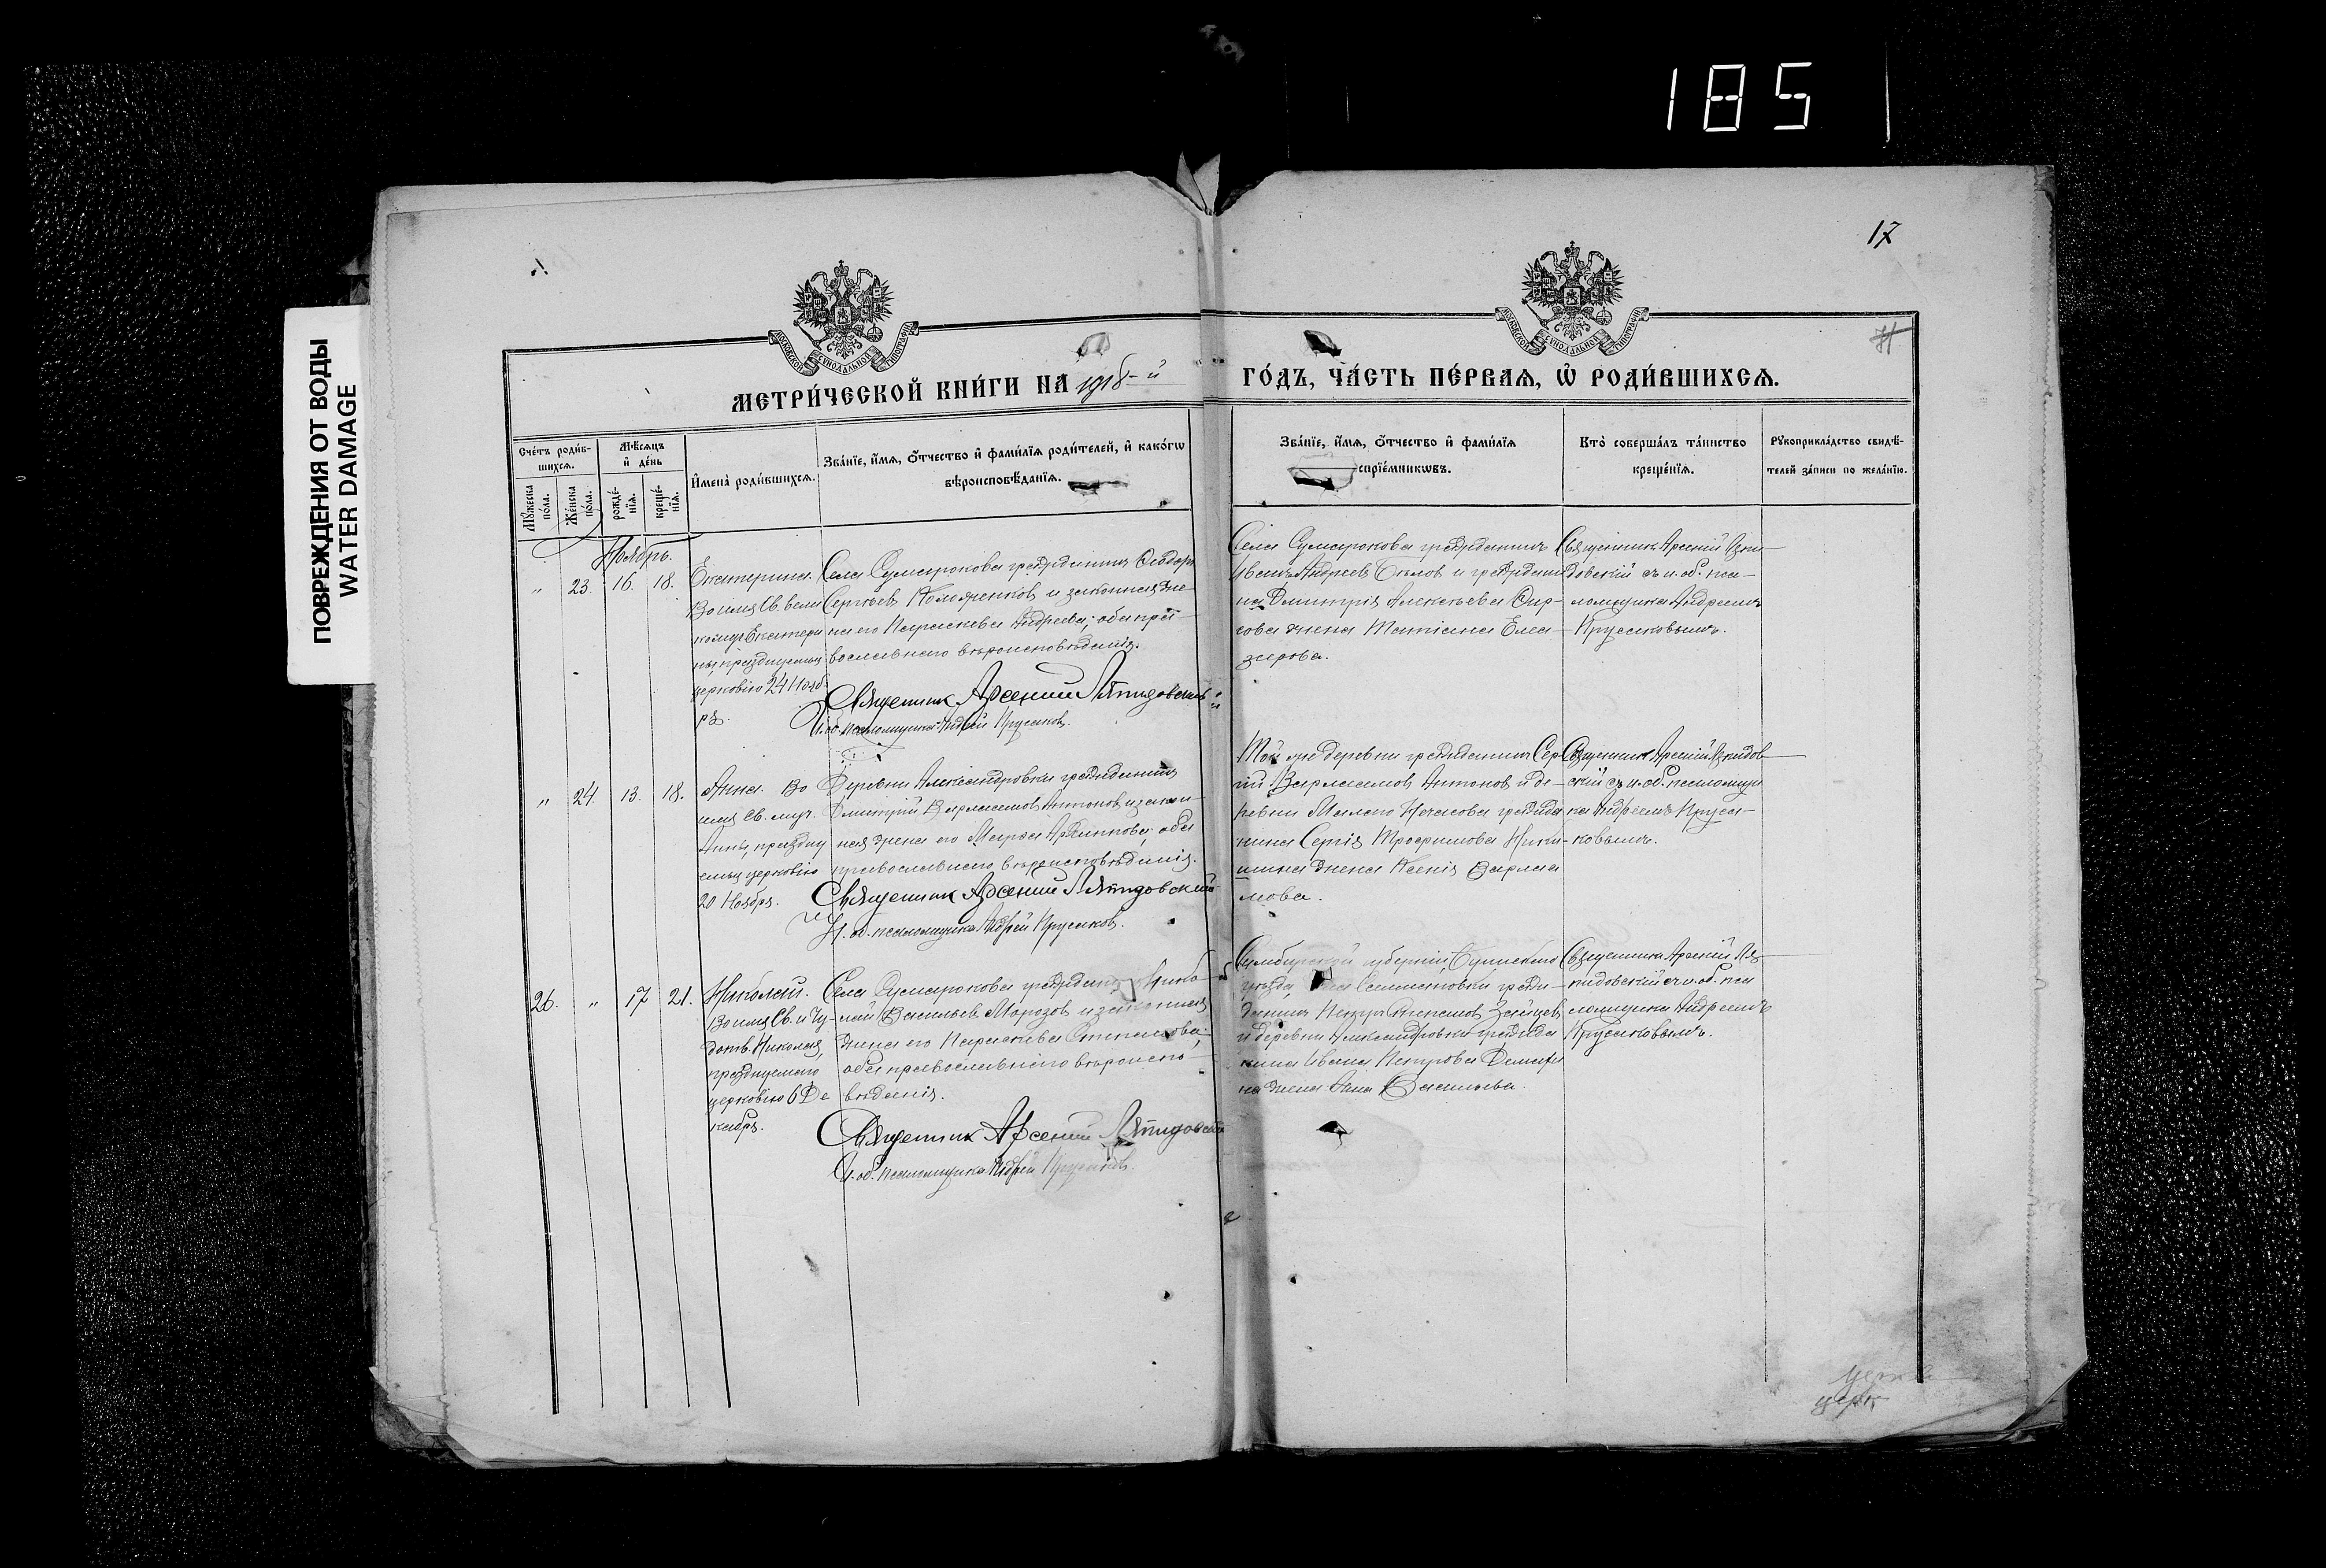 185
17
ПОВРЕЖДЕНИЯ ОТ ВОДЫ
WATER DAMAGE
МОСКОВСКОЙ СѴНОДАЛЬНОЙ ТИПОГРАФІИ
МОСКОВСКОЙ СѴНОДАЛЬНОЙ ТИПОГРАФІИ
МЕТРИ́ЧЕСКОЙ КНИ́ГИ НА 1918-й
ГО́ДЪ, ЧА́СТЬ ПЕ́РВАѦ, Ѡ РОДИ́ВШИХСѦ.
Сче́тъ роди́в-
шихсѧ.
Мꙋ́жеска по́ла.
Же́нска по́ла.
Мѣ́сѧцъ
и҆ де́нь
рожде́-
нїѧ.
креще́-
нїѧ.
И҆мена̀ роди́вшихсѧ.
Зва́нїе, и҆́мѧ, ѻ҆́тчество и҆ фами́лїѧ роди́телей, и҆ како́гѡ
вѣроисповѣ́данїѧ.
Зва́нїе, и҆́мѧ, ѻ҆́тчество и҆ фами́лїѧ
спрїе́мникѡвъ.
Кто̀ соверша́лъ та́инство
креще́нїѧ.
Рꙋкоприкла́дство свидѣ́-
телей за́писи по жела́нїю.
Ноябрь.
" 23. 16. 18.
Екатерина.
Во имя Св. вели
комуч. Екатери
ны, празднуемыя
церковію 24 Нояб-
ря.
Села Сумарокова гражданинъ Ѳеодоръ
Сергѣевъ и законная же-
на его Параскева Андреева; оба пра-
вославнаго вѣроисповѣданія.
Священникъ Арсеній
И. об. псаломщика Андрей Крусаковъ.
Села Сумарокова гражданинъ
Иванъ Андреевъ и граждани
на Димитрія Алексѣева
жена Татіана Елеа-
зарова.
Священникъ Арсеній
довскій съ и. об. пса-
ломщика Андреемъ
Крусаковымъ.
" 24. 13. 18.
Анна. Во
имя Св. муч.
Анны, праздну
емыя церковію
20 Ноября.
Деревни Александровки гражданинъ
Димитрій Варлаамовъ Антоновъ и закон-
ная жена его оба
православнаго вѣроисповѣданія.
Священникъ Арсеній
И. об. псаломщика Андрей Крусаковъ.
Той же деревни гражданинъ Сер-
гій Варлаамовъ Антоновъ и де-
ревни Малаго гражда
нина Сергія Трофимова Ники-
шина жена Ксенія Варлаа
мова.
Священникъ Арсеній
скій съ и. об. псаломщи
ка Андреемъ Круса-
ковымъ.
26. " 17 21.
Николай.
Во имя Св. и Чу-
дотв. Николая,
празднуемаго
церковію 6 Де
кабря.
Села Сумарокова гражданинъ Нико-
лай Васильевъ Морозовъ и законная
жена его Параскева Степанова;
оба православнаго вѣроиспо-
вѣданія.
Священникъ Арсеній
И. об. псаломщика Андрей Крусаковъ.
Симбирской губерніи,
уѣзда, граж-
данинъ Петръ Степановъ Зайцевъ
и деревни Александровки гражда
нина Ивана Петрова
на жена Анна Васильева.
Священникъ Арсеній
съ и. об. пса
ломщика Андреемъ
Крусаковымъ.